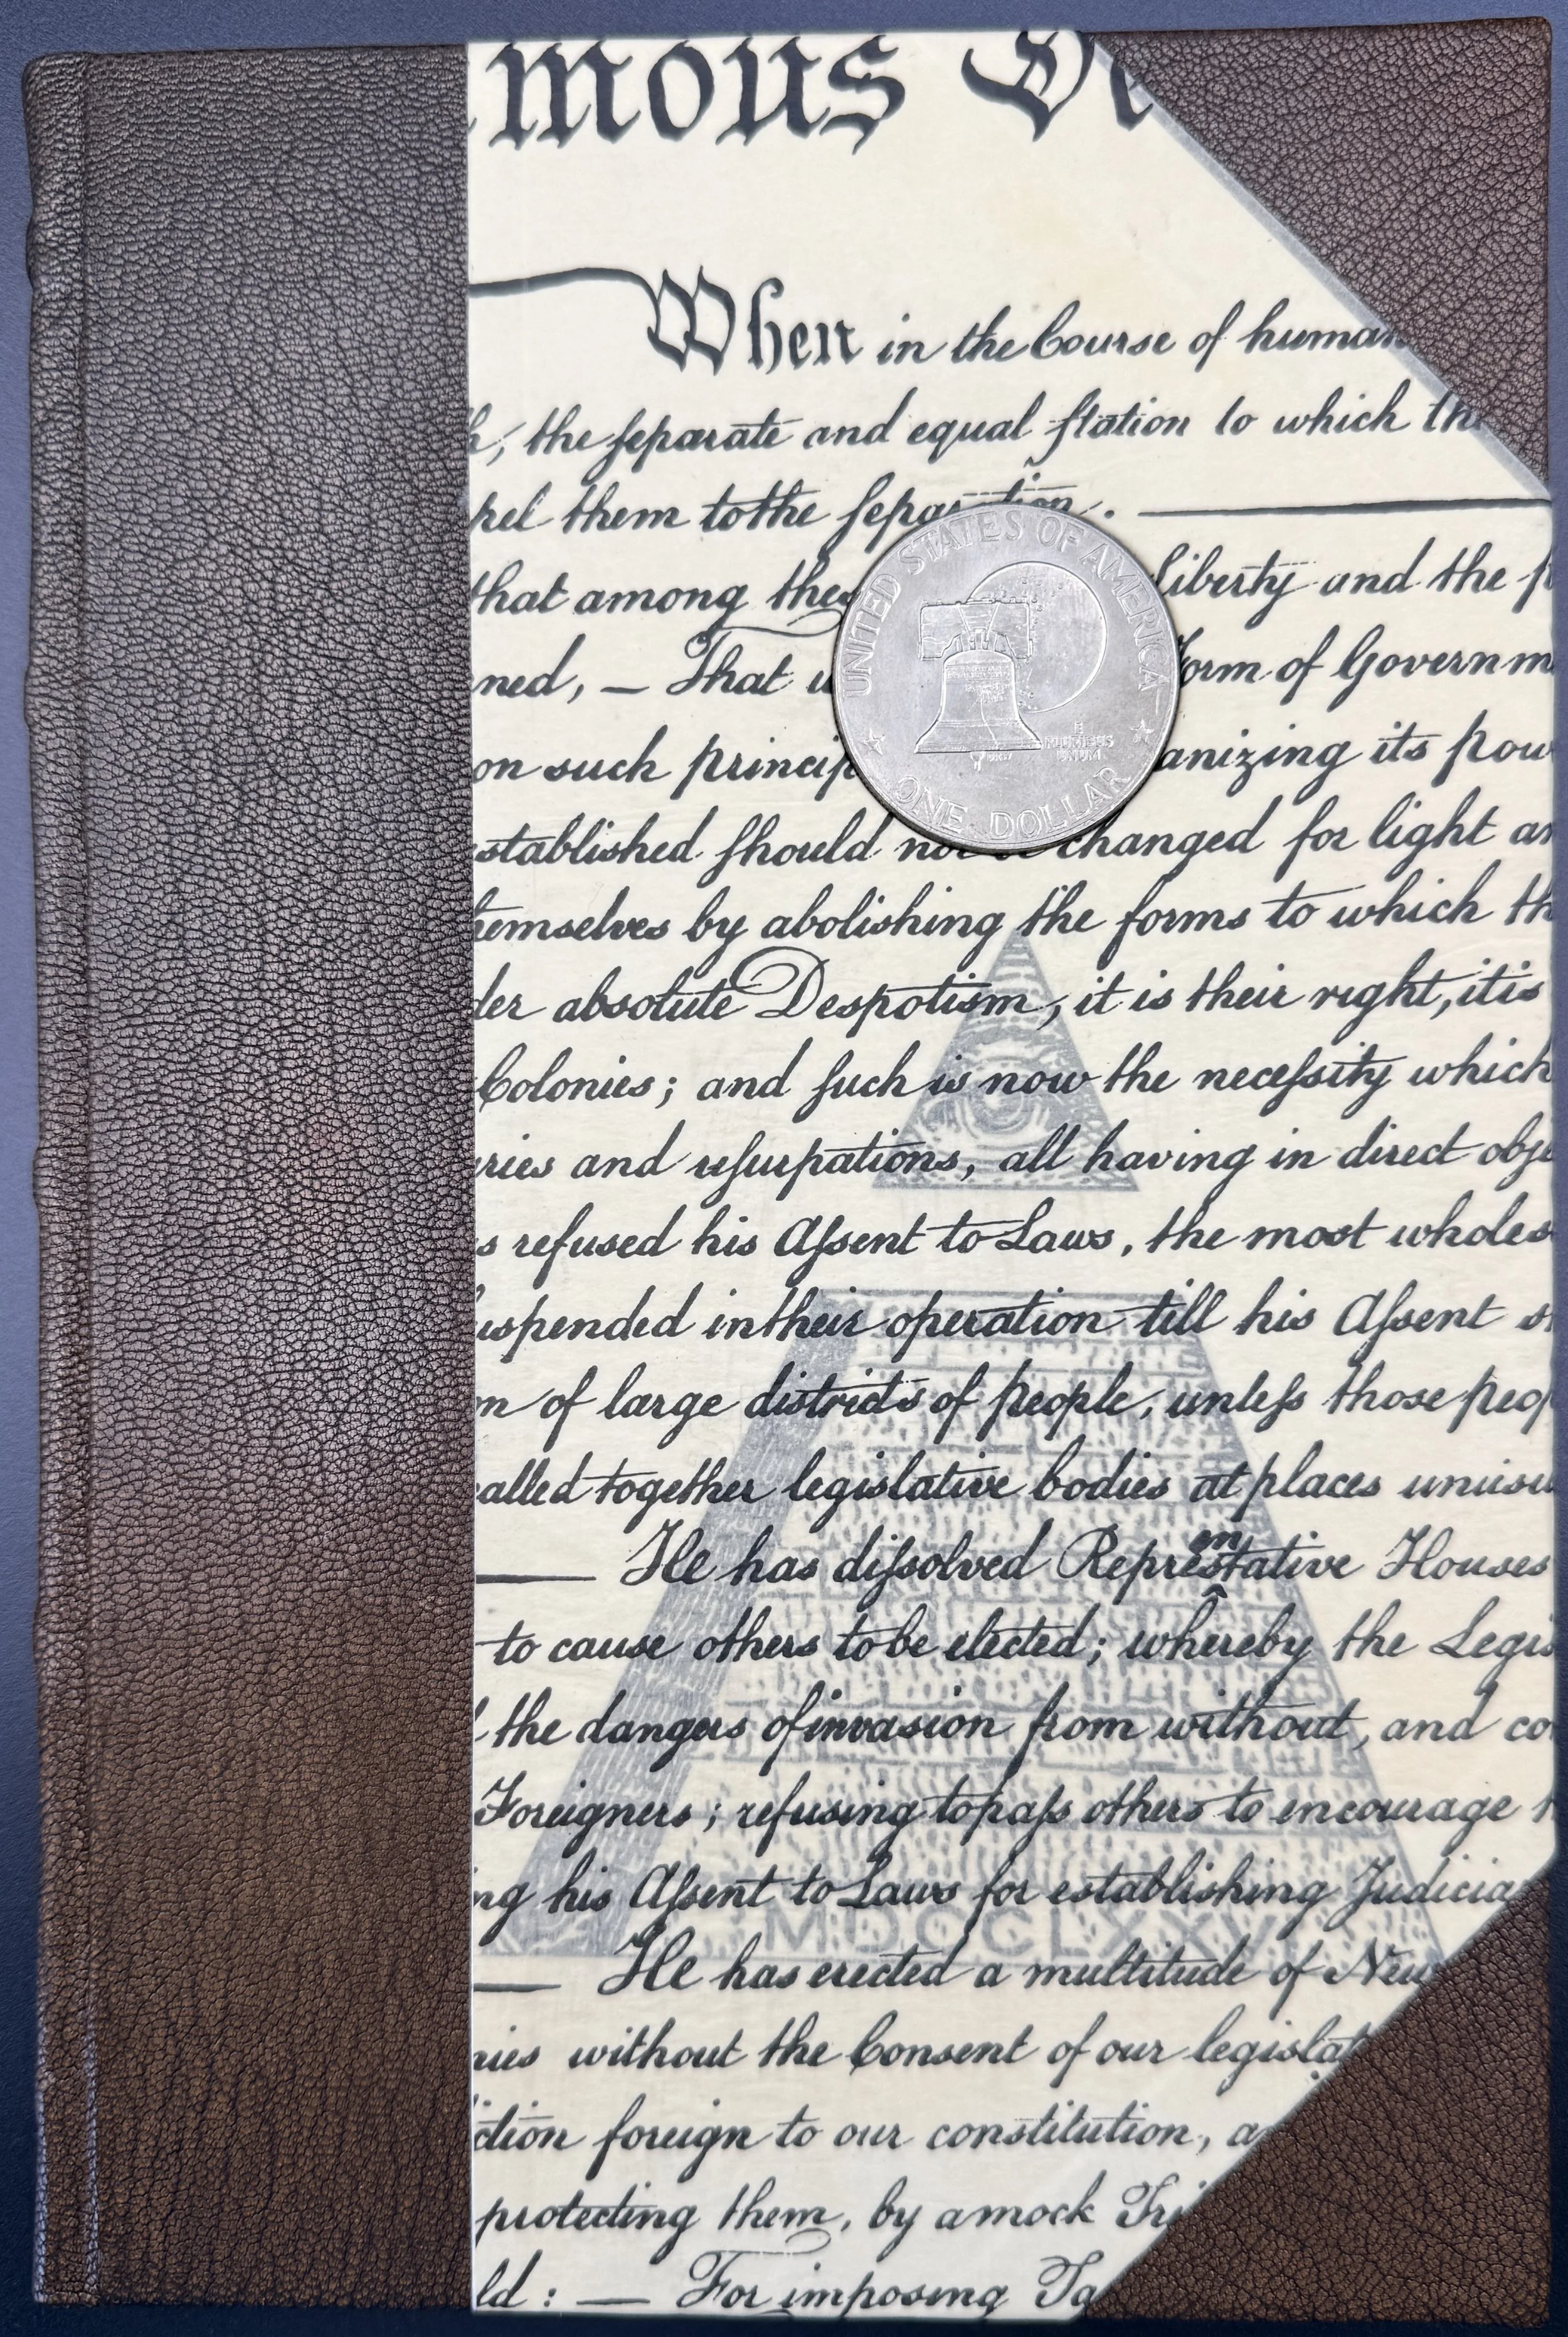 mous De
When in the Course of human
the separate and equal station to which the
them to the separation.
that among these liberty and the
ned, — That Form of Governm
on such princip anizing its pow
established should not be changed for light an
themselves by abolishing the forms to which th
der absolute Despotism, it is their right, it is
Colonies; and such is now the necessity which
ries and usurpations, all having in direct obje
s refused his Assent to Laws, the most wholes
uspended in their operation till his Assent s
on of large districts of people, unless those peop
called together legislative bodies at places unusu
— He has dissolved Representative Houses
to cause others to be elected; whereby the Legis
the dangers of invasion from without, and co
Foreigners; refusing to pass others to encourage
ng his Assent to Laws for establishing Judicia
— He has erected a multitude of New
nies without the Consent of our legislat
ction foreign to our constitution, a
protecting them, by a mock Tri
ld: — For imposing Ta
UNITED STATES OF AMERICA
E
PLURIBUS
UNUM
ONE DOLLAR
MDCCLXXV